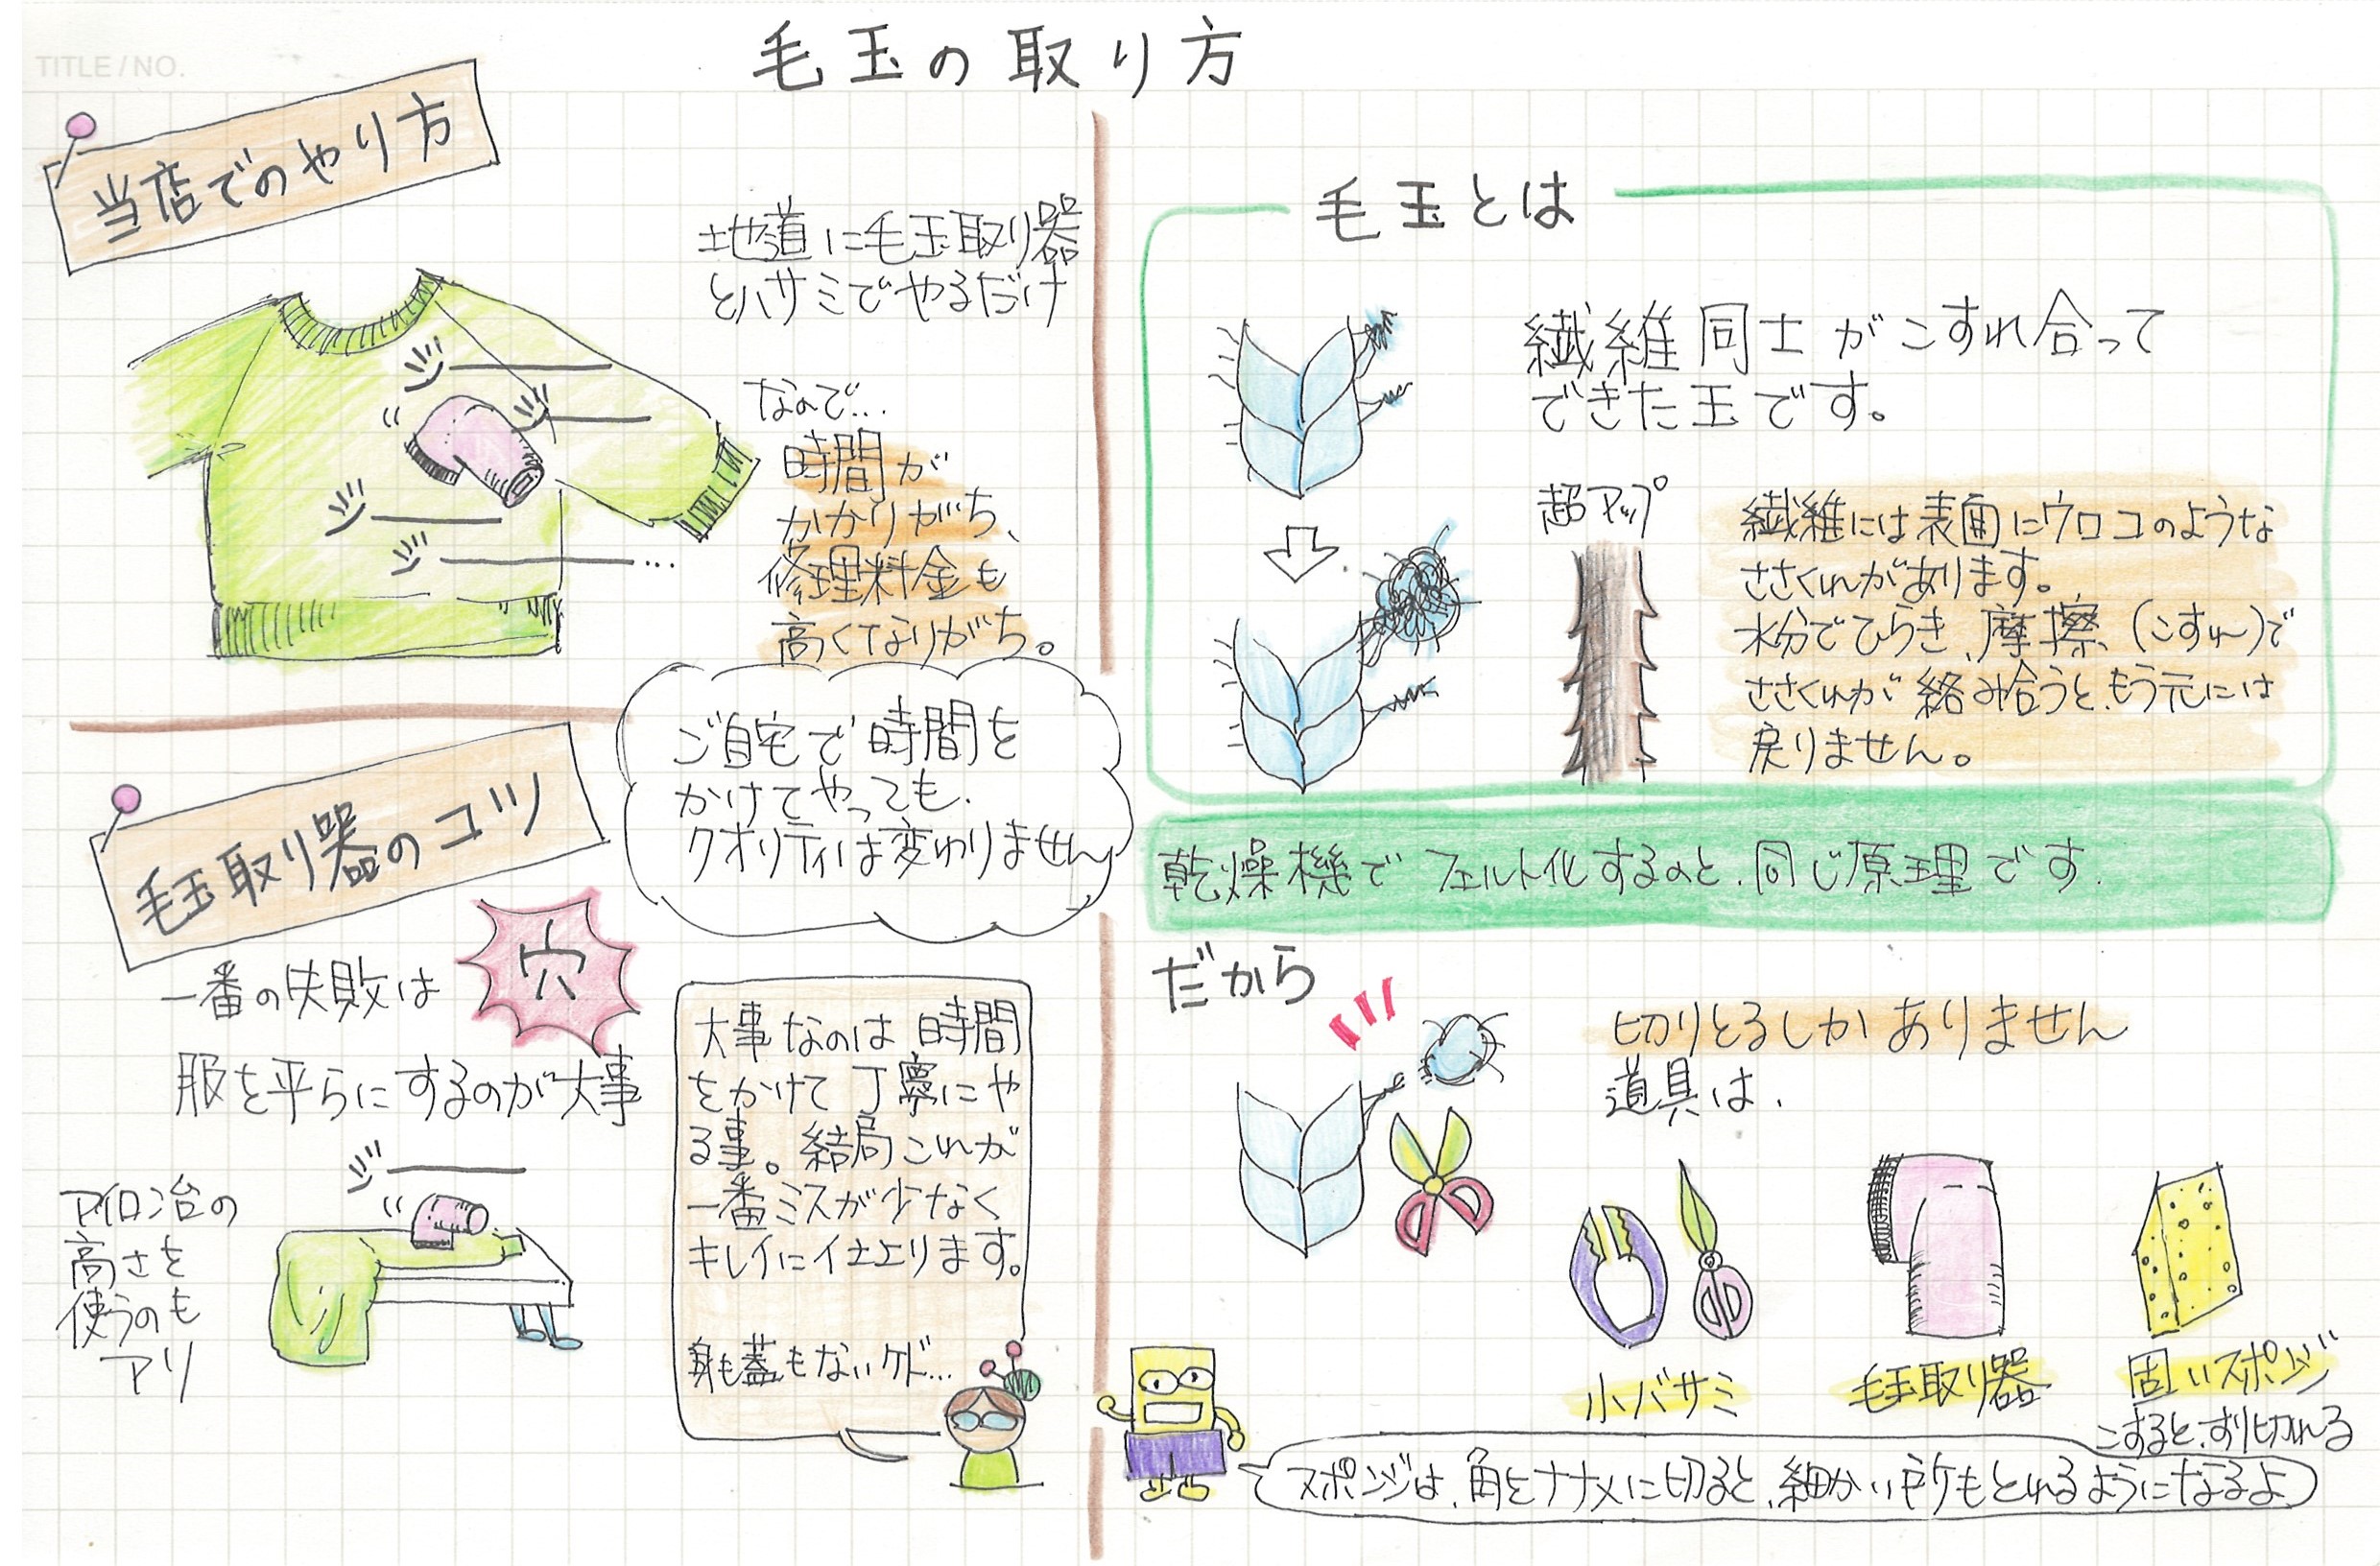 TITLE / NO.
毛玉の取り方
当店でのやり方
地道に毛玉取り器
とハサミでやるだけ
なので…
時間が
かかりがち、
修理料金も
高くなりがち。
ジ
ジ
ジ
ジ
…
ご自宅で時間を
かけてやっても、
クオリティは変わりません
毛玉取り器のコツ
一番の失敗は
穴
服を平らにするのが大事
ジ
アイロン台の
高さを
使うのも
アリ
大事なのは時間
をかけて丁寧にや
る事。結局これが
一番ミスが少なく
キレイに仕上ります。
身も蓋もないケド…
毛玉とは
繊維同士がこすれ合って
できた玉です。
超アップ
繊維には表面にウロコのような
ささくれがあります。
水分でひらき、摩擦(こすれ)で
ささくれが絡み合うと、もう元には
戻りません。
乾燥機でフェルト化するのと、同じ原理です.
だから
切りとるしかありません
道具は、
小バサミ
毛玉取り器
固いスポンジ
こすると、すり切れる
スポンジは、角をナナメに切ると、細かい所もとれるようになるよ